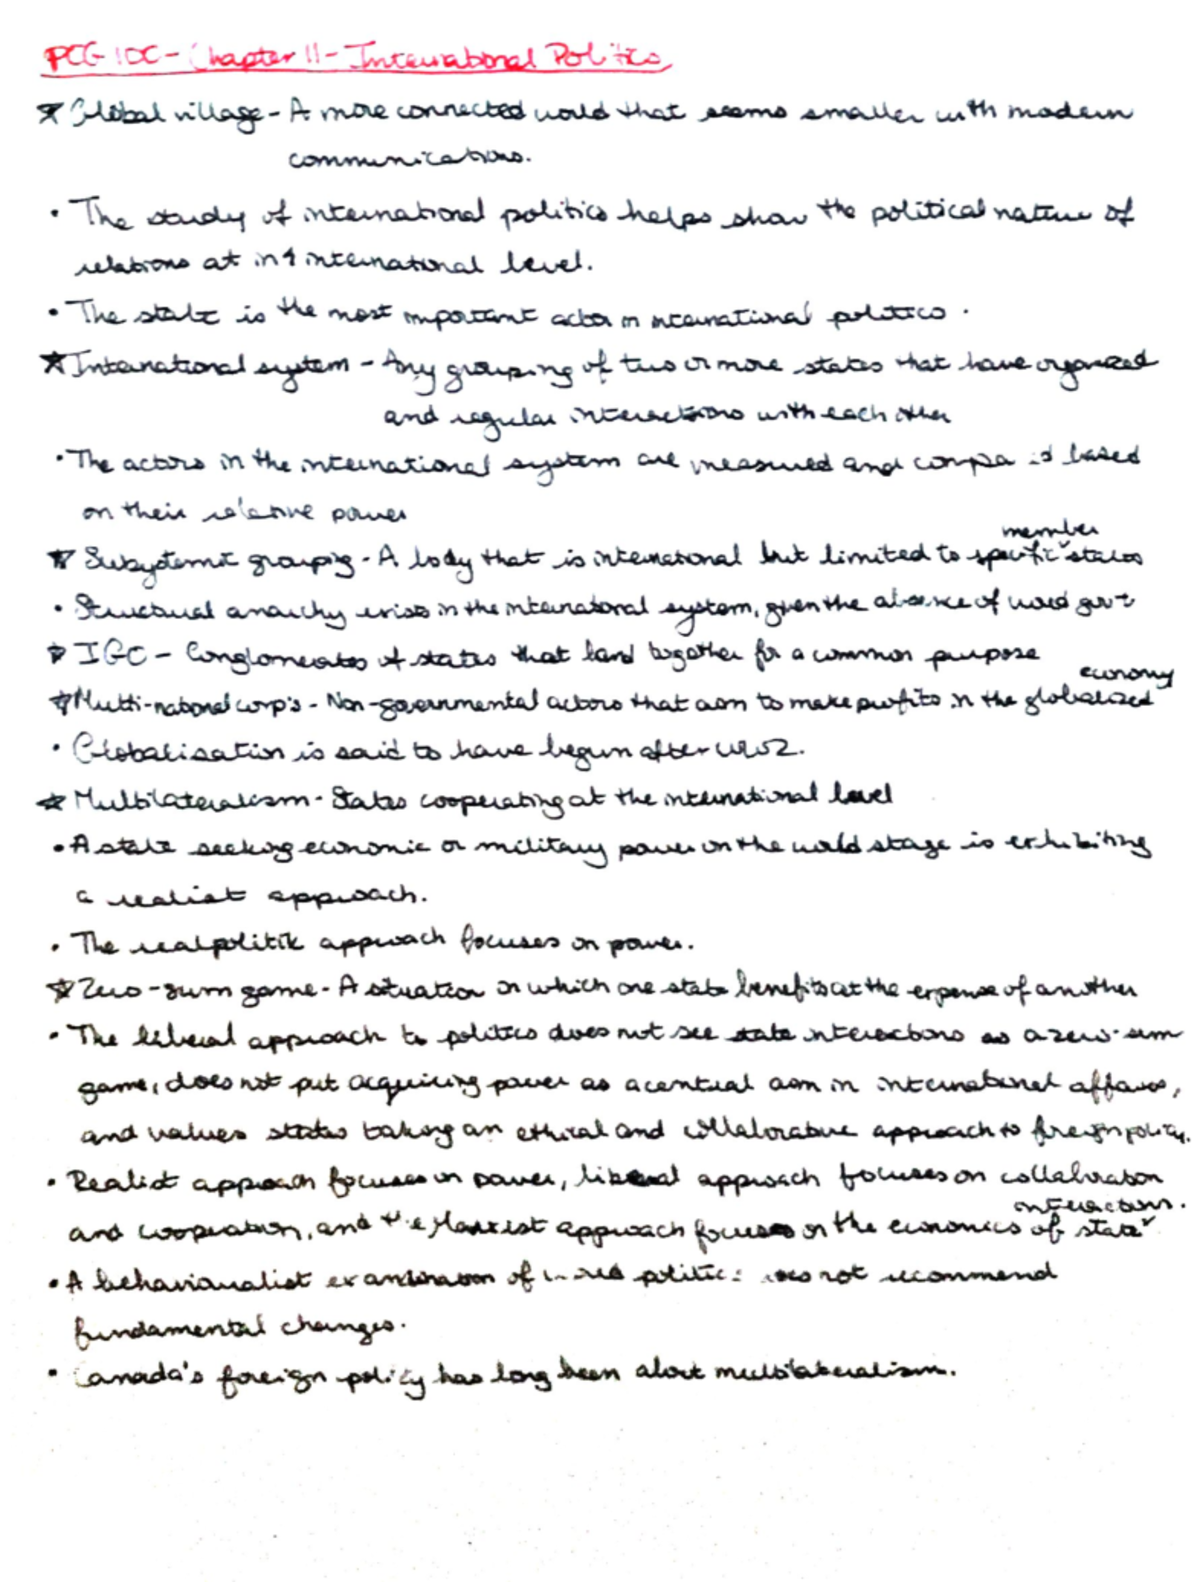 PCG 100 - Chapter 11 - International Politics
★ Global village - A more connected world that seems smaller with modern
communications.
• The study of international politics helps show the political nature of
relations at int international level.
• The state is the most important actor in international politics.
★ International system - Any grouping of two or more states that have organized
and regular interactions with each other
• The actors in the international system are measured and compared based
on their relative power
member
★ Subsystemic grouping - A body that is international but limited to specific ˇ states
• Structural anarchy exists in the international system, given the absence of world gov't
★ IGO - Conglomerates of states that band together for a common purpose
economy
★ Multi-national corp's - Non-governmental actors that aim to make profits in the globalized ˇ
• Globalisation is said to have begun after WW2.
★ Multilateralism - States cooperating at the international level
• A state seeking economic or military power on the world stage is exhibiting
a realist approach.
• The realpolitik approach focuses on power.
★ Zero-sum game - A situation in which one state benefits at the expense of another
• The liberal approach to politics does not see state interactions as a zero-sum
game, does not put acquiring power as a central aim in international affairs,
and values states taking an ethical and collaborative approach to foreign policy.
• Realist approach focuses on power, liberal approach focuses on collaboration
interactions.
and cooperation, and the Marxist approach focuses on the economics of state ˇ
• A behaviouralist examination of world politics does not recommend
fundamental changes.
• Canada's foreign policy has long been about multilateralism.